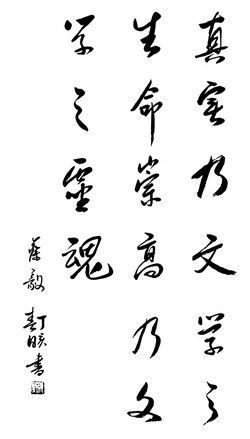 真实乃文学之
生命崇高乃文
学之灵魂
蔡毅
书